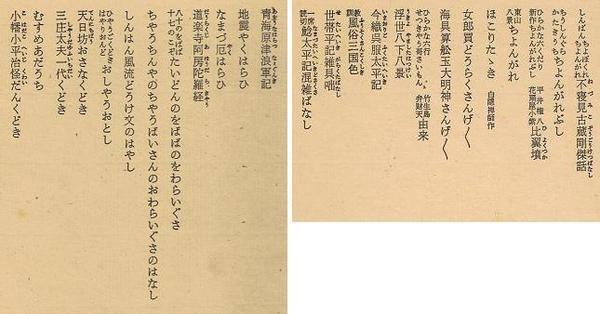 しんぱん ちよぼくれ ちよんがれ 不寝見古蔵剛傑話
ちうしんぐら かたきうち ちよんがれぶし
ひらかな六くだり 新作ちよんがれぶし 平井権八 花扇屋小紫 比翼墳
東山八景 ちよんがれ
ほこりたゝき 白隠禅師作
女郎買どうらくさんげ〳〵
海具算舩玉大明神さんげ〳〵
ひらかな六行 竹生島弁財天 由来
浮世八下八景
今織呉服太平記
風俗三国色
世帯平記雑具噺
一席読切 鯰太平記混雑ばなし
青海原津浪軍記
地震やくはらひ
なまづ厄はらひ
道楽寺阿房陀羅経
たいどんのをばばのをわらいぐさ
ちやうちんやのちやうばいさんのおわらいぐさのはなし
しんはん風流どうけ文のはやし
おしやうおとし
天日坊おさなくどき
三庄太夫一代くどき
むすめあだうち
小幡小平治怪だんくどき